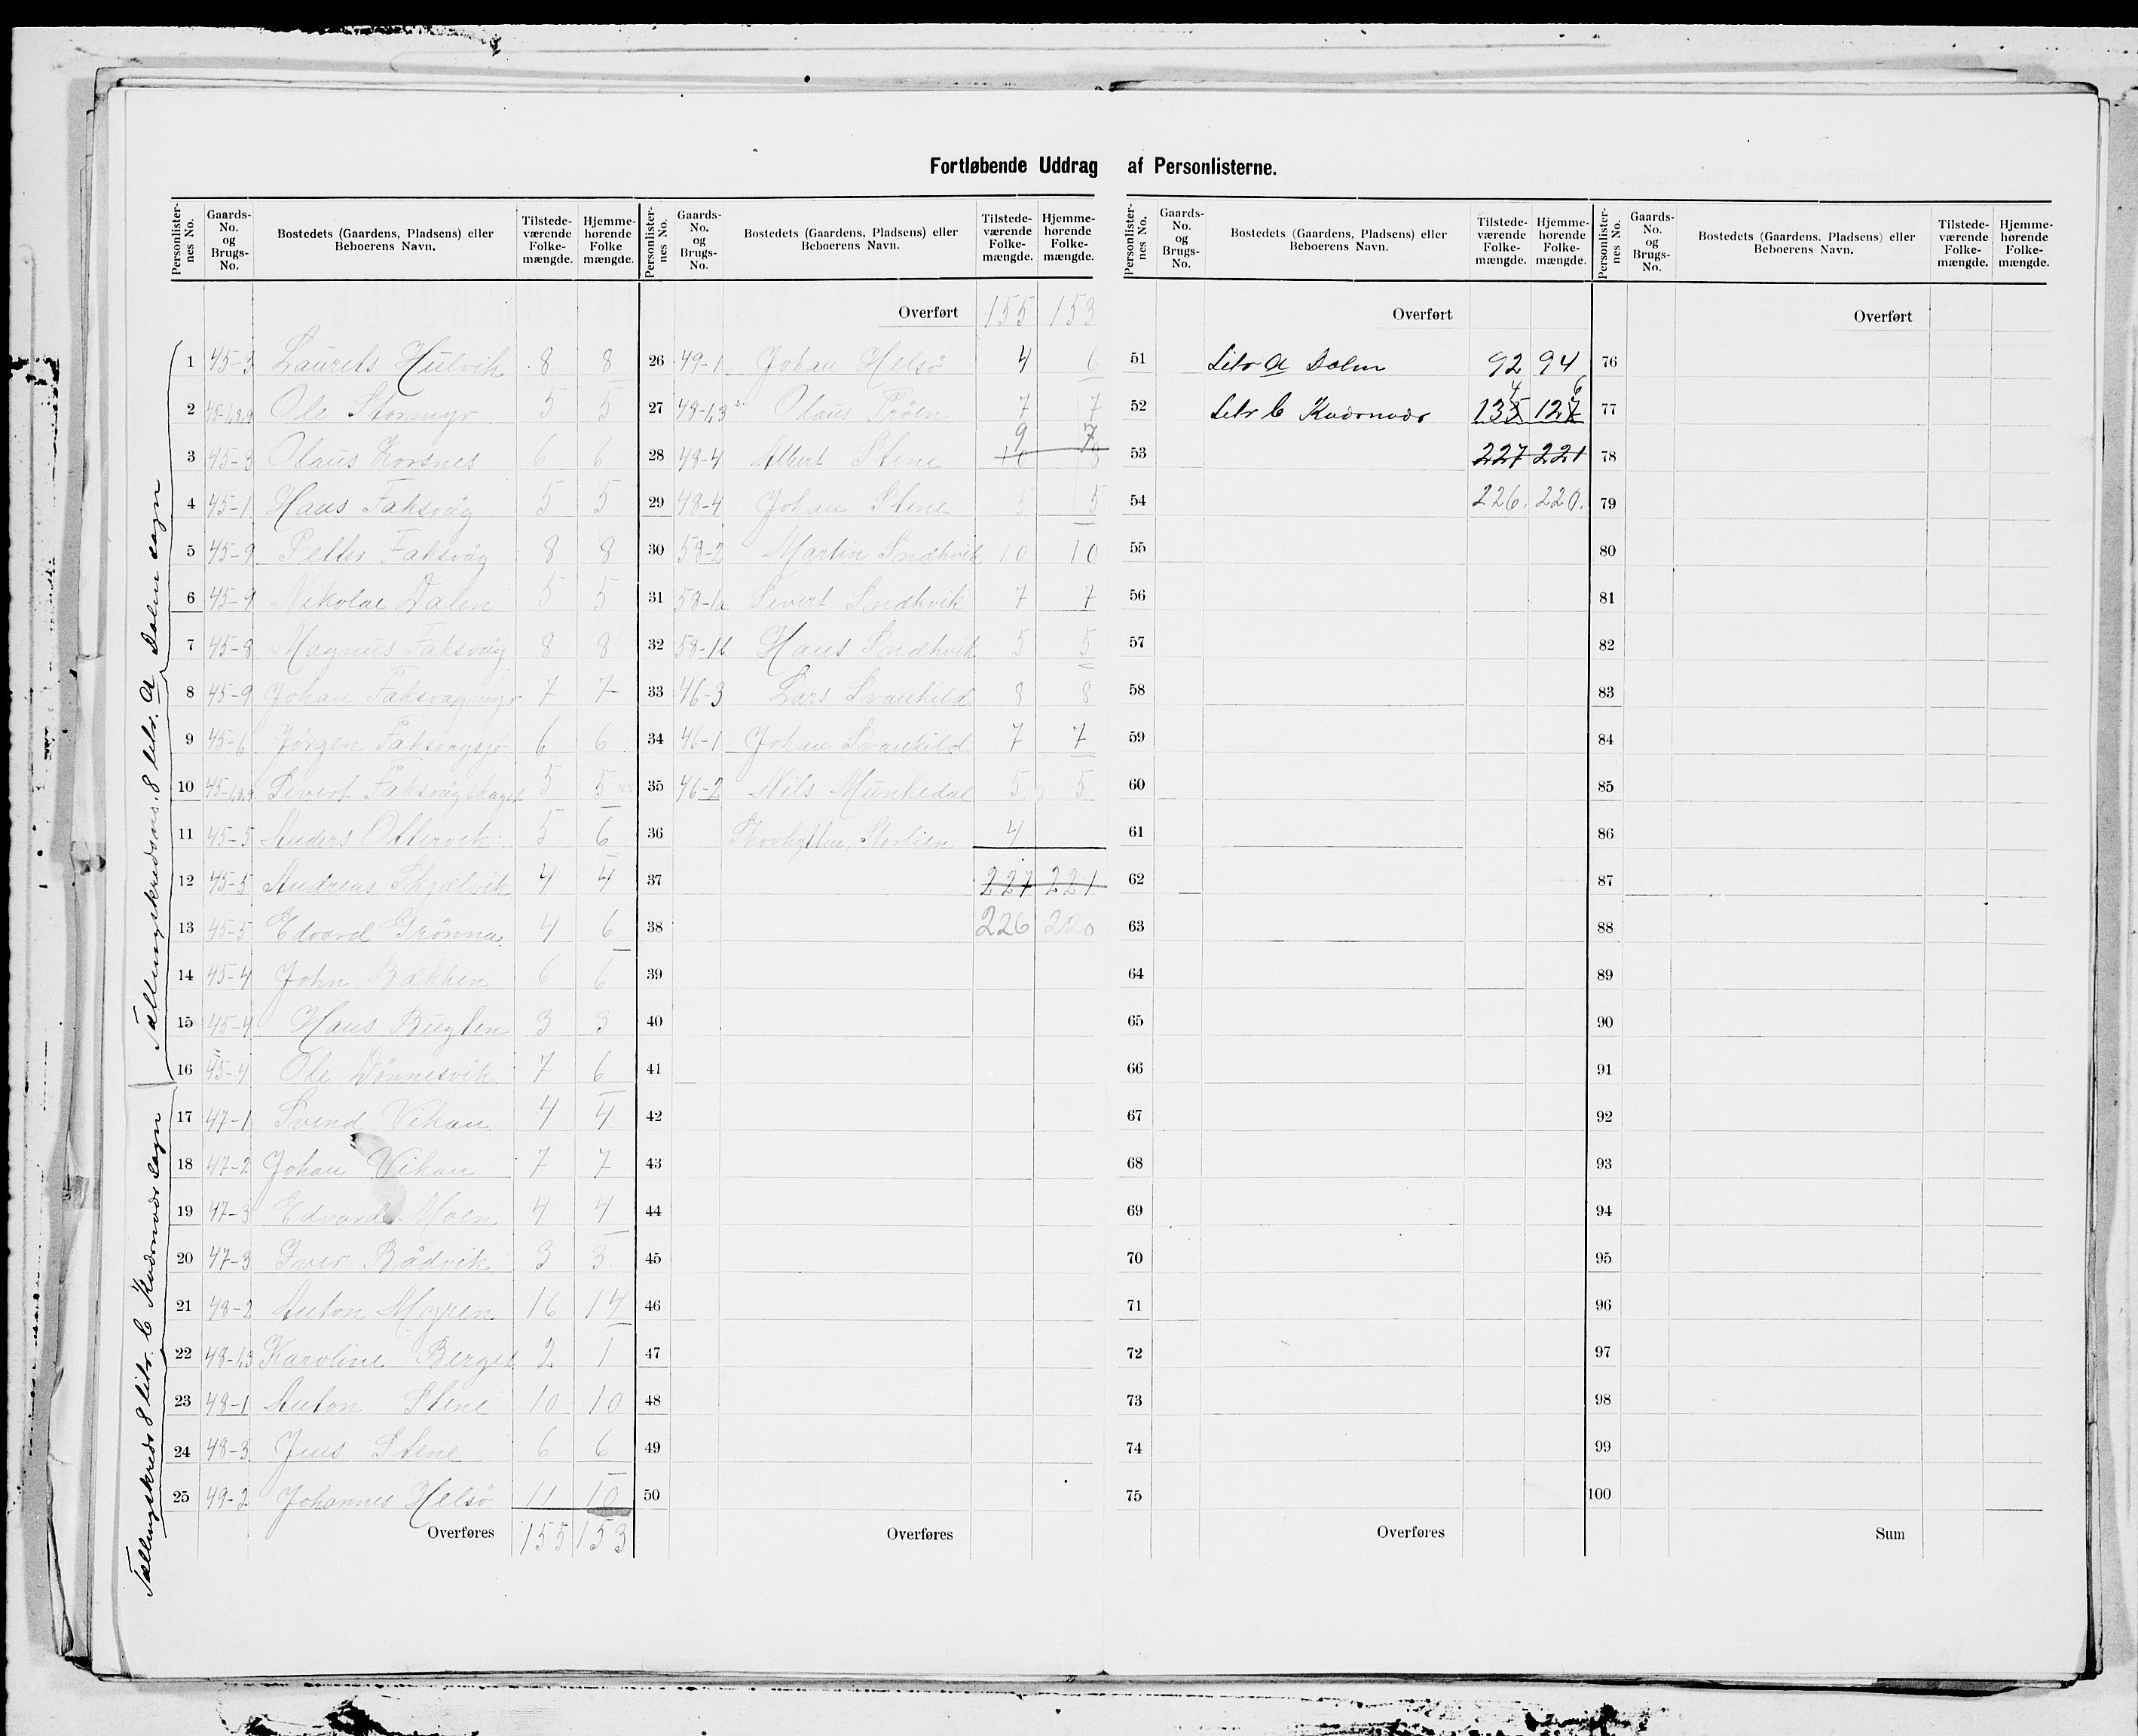 Fortløbende Uddrag af Personlisterne.
Personlister-nes No. Gaards-No. og Brugs-No. Bostedets (Gaardens, Pladsens) eller Beboerens Navn. Tilstede-værende Folke-mængde. Hjemme-hørende Folke mængde.
1 45-3 Laurits Hulvik 8 8
2 45-1,8,9 Ole Stormyr 5 5
3 45-3 Olaus Korsnes 6 6
4 45-1 Hans Faksvåg 5 5
5 45-9 Petter Faksvåg 8 8
6 45-9 Nikolai Dalen 5 5
7 45-8 Magnus Faksvåg 8 8
8 45-9 Johan Faksvagmyr 7 7
9 45-6 Jørgen Faksvagsjø 6 6
10 45-1,8,9 Sivert Faksvåg 5 5
11 45-5 Anders Ottervik 5 6
12 45-5 Andreas Skjælvik 4 4
13 45-5 Edvard Grønna 4 6
14 45-4 John Bækken 6 6
15 45-4 Hans Bugten 3 3
16 45-4 Ole Dønnesvik 7 6
17 47-1 Svend Vikan 4 4
18 47-2 Johan Vikan 7 7
19 47-3 Edvard Moen 4 4
20 47-3 Iver Rådvik 3 3
21 48-2 Anton Myren 16 14
22 48-1,3 Karoline Berget 2 1
23 48-1 Anton Stene 10 10
24 48-3 Jens Stene 6 6
25 49-2 Johannes Helsø 11 10
Overføres 155 153
Tællingskreds 8 litr. a Dolm sogn
Tællingskreds 8 litr. b Kværnvær sogn
Personlister-nes No. Gaards-No. og Brugs-No. Bostedets (Gaardens, Pladsens) eller Beboerens Navn. Tilstede-værende Folke-mængde. Hjemme-hørende Folke-mængde.
Overført 155 153
26 49-1 Johan Helsø 4 6
27 48-1,3 Olaus Trøen 7 7
9 7
28 48-4 Albert Stene 10
29 48-4 Johan Stene 5 5
30 58-2 Martin Sndhvik 10 10
31 58-1a Sivert Sndhvik 7 7
32 58-1b Hans Sndhvik 5 5
33 46-3 Lars Svanhild 8 8
34 46-1 Johan Svanhild 7 7
35 46-2 Nils Munkedal 5 5
36 4
37 227 221
38 226 220
39
40
41
42
43
44
45
46
47
48
49
50
Overføres
Personlister-nes No. Gaards-No. og Brugs-No. Bostedets (Gaardens, Pladsens) eller Beboerens Navn. Tilstede-værende Folke-mængde. Hjemme-hørende Folke-mængde.
Overført
51 Litr a Dolm 92 94
4 6
52 Litr b Kværnvær 135 127
53 227 221
54 226. 220.
55
56
57
58
59
60
61
62
63
64
65
66
67
68
69
70
71
72
73
74
75
Overføres
Personlister-nes No. Gaards-No. og Brugs-No. Bostedets (Gaardens, Pladsens) eller Beboerens Navn. Tilstede-værende Folke-mængde. Hjemme-hørende Folke-mængde.
Overført
76
77
78
79
80
81
82
83
84
85
86
87
88
89
90
91
92
93
94
95
96
97
98
99
100
Sum